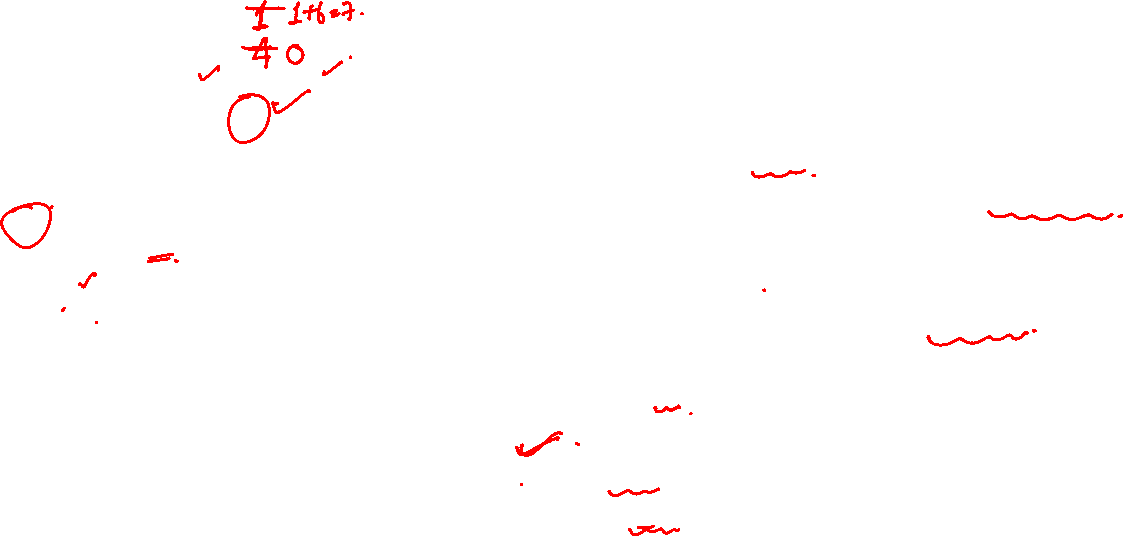 1 1+6=7.
4 0